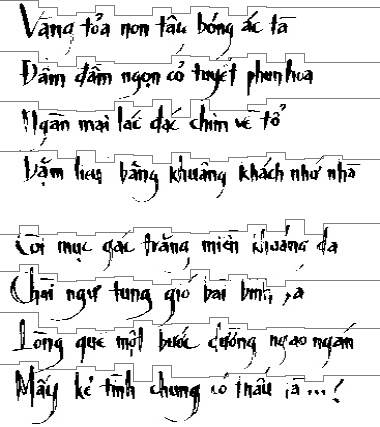 Vàng tỏa non tây bóng ác tà
Đầm đầm ngọn cỏ tuyết phun hoa
Ngàn mai lác đác chim về tổ
Dặm liễu bâng khuâng khách nhớ nhà
Còi mục gác trăng miền khoáng dã
Chài ngư tung gió bãi bình sa
Lòng quê một bước dường ngao ngán
Mấy kẻ tình chung có thấu là ... !